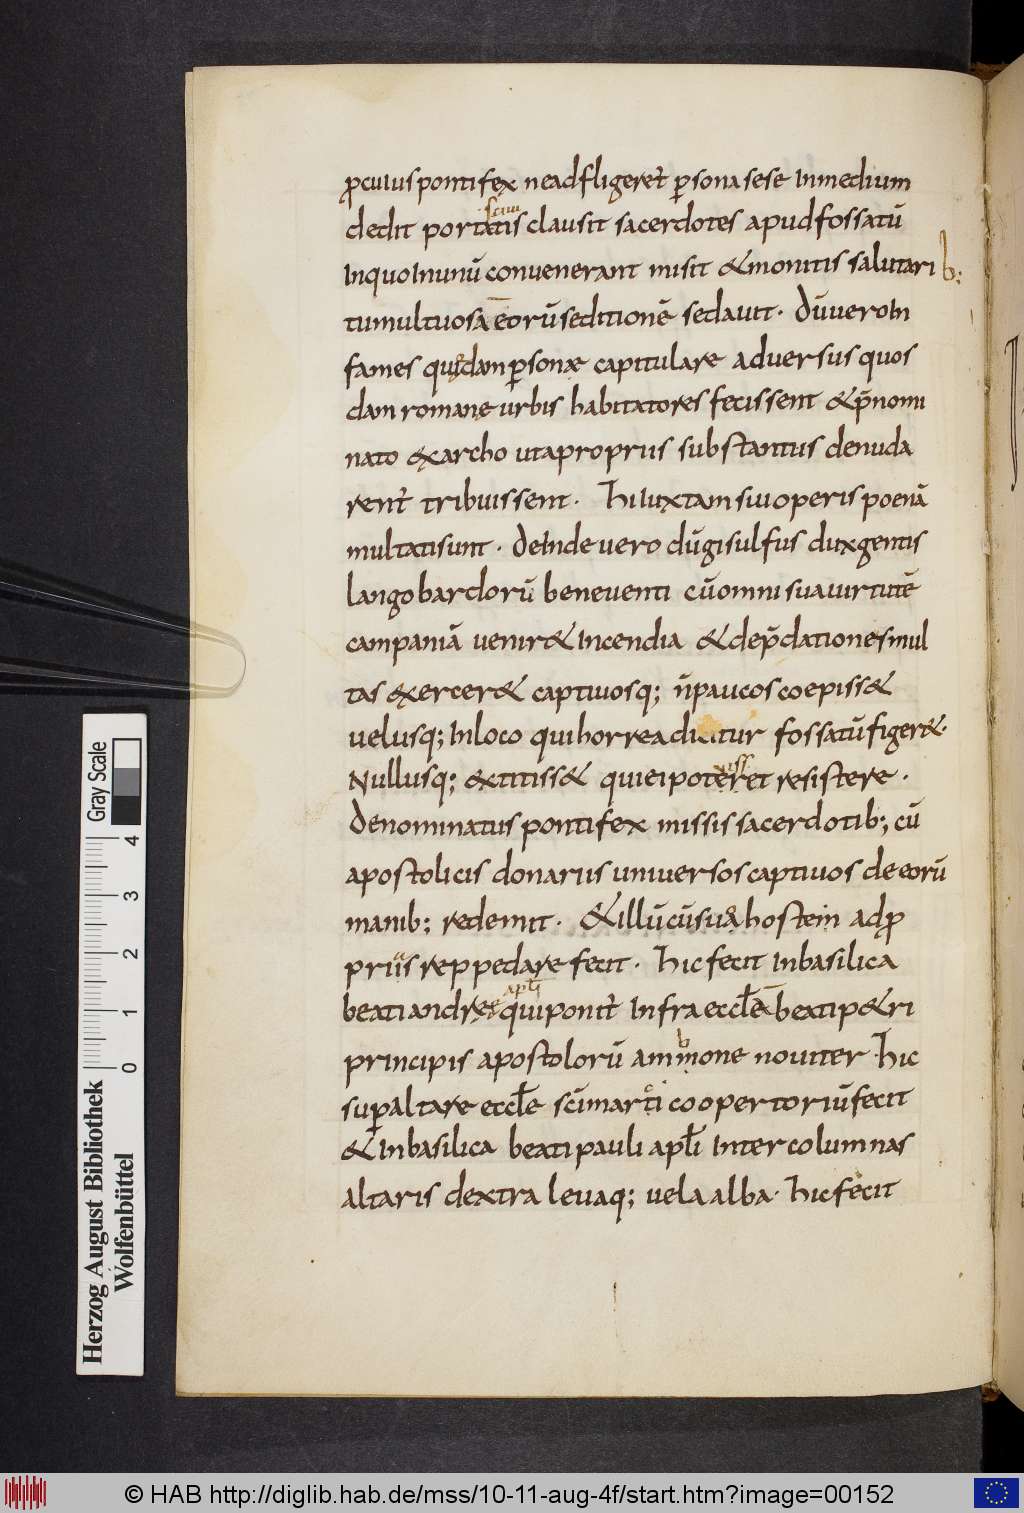 ꝓcuius pontifex ne adfligeret᷑ ꝑsona sese In medium
dedit portatis clausit sacerdotes apud fossatū
In quo In unū convenerant misit & monitis salutarib;
tumultuosā eorū seditionē sedavit. Dū vero In
fames quędam ꝑsonae capitulare adversus quos
dam romanę urbis habitatores fecissent & p̄nomi
nato exarcho ut a propriis substantiis denuda
rent᷑ tribuissent. Hi Iuxtam sui operis poenā
multati sunt. deInde vero dū gisulfus dux gentis
langobardorū beneventi cū omni sua virtutē
campaniā venir& Incendia & dep̄dationes mul
tas exercer& captivosq; n̄ paucos coepiss&
velusq; In loco qui horrea dicitur fossatū figer&.
Nullusq; extitiss& qui ei poteret resistere.
Denominatus pontifex missis sacerdotib; cū
apostolicis donariis universos captivos de eorū
manib; redemit. & illū cū sua hostein ad ꝓ
priis reppedare fecit. Hic fecit In basilica
apl̄i
beati andreę qui ponit᷑ Infra eccl̄eā beati p&ri
principis apostolorū ammone noviter Hic
suꝑ altare eccl̄e sc̄i marci coopertoriū fecit
& In basilica beati pauli apl̄i Inter columnas
altaris dextra levaq; vela alba. Hic fecit
Herzog August Bibliothek
Wolfenbüttel
0 1 2 3 4
Gray Scale
© HAB http://diglib.hab.de/mss/10-11-aug-4f/start.htm?image=00152